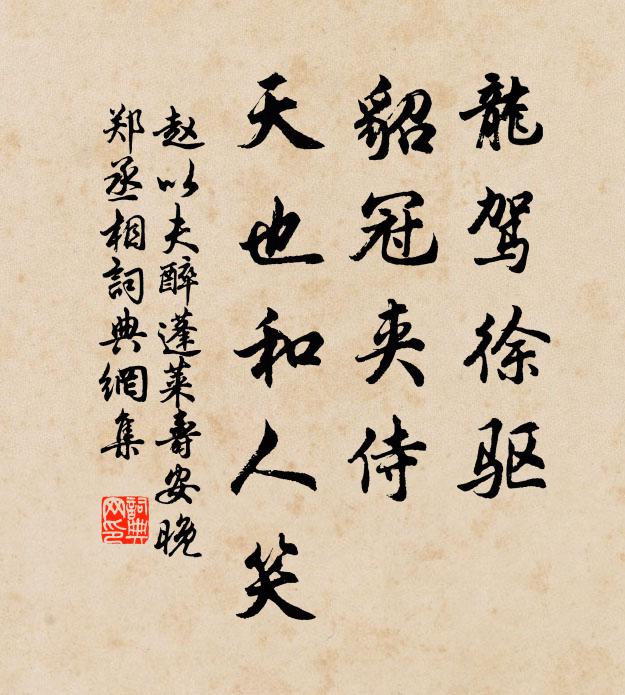 龍驾徐驱
貂冠夹侍
天也和人笑
赵以夫醉蓬莱寿安晚
郑丞相詞典網集
詞典网印